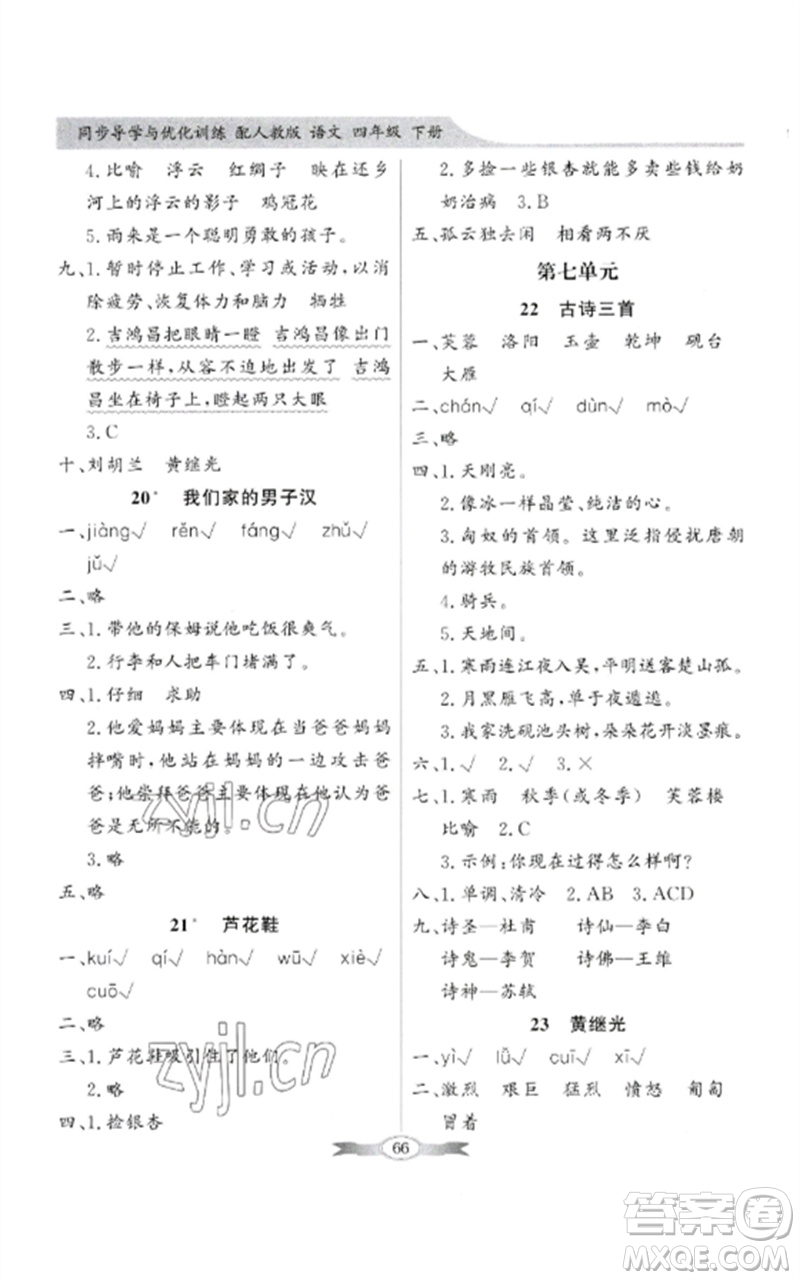 同步导学与优化训练 配人教版 语文 四年级 下册
4.比喻 浮云 红绸子 映在还乡
河上的浮云的影子 鸡冠花
5.雨来是一个聪明勇敢的孩子。
九、1.暂时停止工作、学习或活动,以消
除疲劳、恢复体力和脑力 牺牲
2.吉鸿昌把眼睛一瞪 吉鸿昌像出门
散步一样,从容不迫地走出去了 吉鸿
昌坐在椅子上,瞪起两只大眼
3.C
十、刘胡兰 黄继光
20* 我们家的男子汉
一、jiàng√ rěn√ fáng√ zhǔ√
jǔ√
二、略
三、1.带他的保姆说他吃饭很爽气。
2.行李和人把车门堵满了。
四、1.仔细 求助
2.他爱妈妈主要体现在当爸爸妈妈
拌嘴时,他站在妈妈的一边攻击爸
爸;他崇拜爸爸主要体现在他认为爸
爸是无所不能的。
3.略
五、略
21* 芦花鞋
一、kuí√ qí√ hàn√ wū√ xiè√
cuō√
二、略
三、1.芦花鞋吸引住了他们。
2.略
四、1.捡银杏
2.多捡一些银杏就能多卖些钱给奶
奶治病 3.B
五、孤云独去闲 相看两不厌
第七单元
22 古诗三首
一、芙蓉 洛阳 玉壶 乾坤 砚台
大雁
二、chán√ qí√ dùn√ mò√
三、略
四、1.天刚亮。
2.像冰一样晶莹、纯洁的心。
3.匈奴的首领。这里泛指侵扰唐朝
的游牧民族首领。
4.骑兵。
5.天地间。
五、1.寒雨连江夜入吴,平明送客楚山孤。
2.月黑雁飞高,单于夜遁逃。
3.我家洗砚池头树,朵朵花开淡墨痕。
六、1.√ 2.√ 3.×
七、1.寒雨 秋季(或冬季) 芙蓉楼
比喻 2.C
3.示例:你现在过得怎么样啊?
八、1.单调、清冷 2.AB 3.ACD
九、诗圣—杜甫 诗仙—李白
诗鬼—李贺 诗佛—王维
诗神—苏轼
23 黄继光
一、yì√ lǚ√ cuī√ xī√
二、激烈 艰巨 猛烈 愤怒 匍匐
冒着
66
zyjl.cn
zyjl.cn
答案卷
MXQE.COM